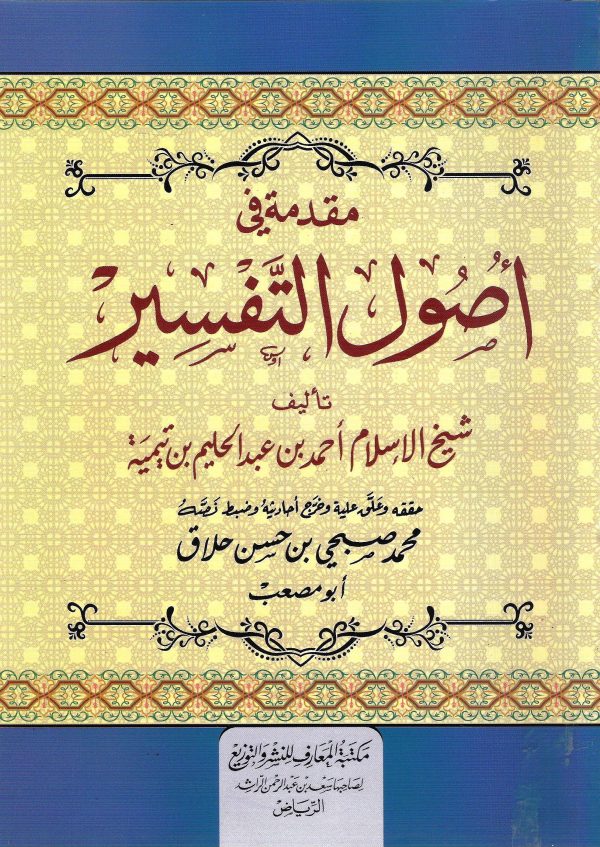 مقدمة في
أُصُول التَّفْسِير
تأليف
شيخ الإسلام أحمد بن عبد الحليم بن تيمية
حققه وعَلَّق علية وخرَّج أحاديثهُ وضبط نَصَّهُ
محمد صبحي بن حسن حلاق
أبو مصعب
مكتبة المعارف للنشر والتوزيع
لصاحبها سعد بن عبد الرحمن الراشد
الرياض